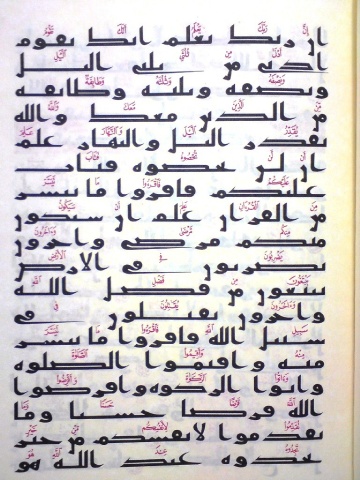 ان ربك يعلم انك تقوم
ادنى من ثلثي اليل
ونصفه وثلثه وطائفه
من الذين معك والله
يقدر اليل والنهار علم
ان لن تحصوه فتاب
عليكم فاقروا ما تيسر
من القران علم ان سيكون
منكم مرضى واخرون
يضربون في الارض
يبتغون من فضل الله
واخرون يقتلون في
سبيل الله فاقروا ما تيسر
منه واقيموا الصلوه
واتوا الزكوه واقرضوا
الله قرضا حسنا وما
تقدموا لانفسكم من خير
تجدوه عند الله هو